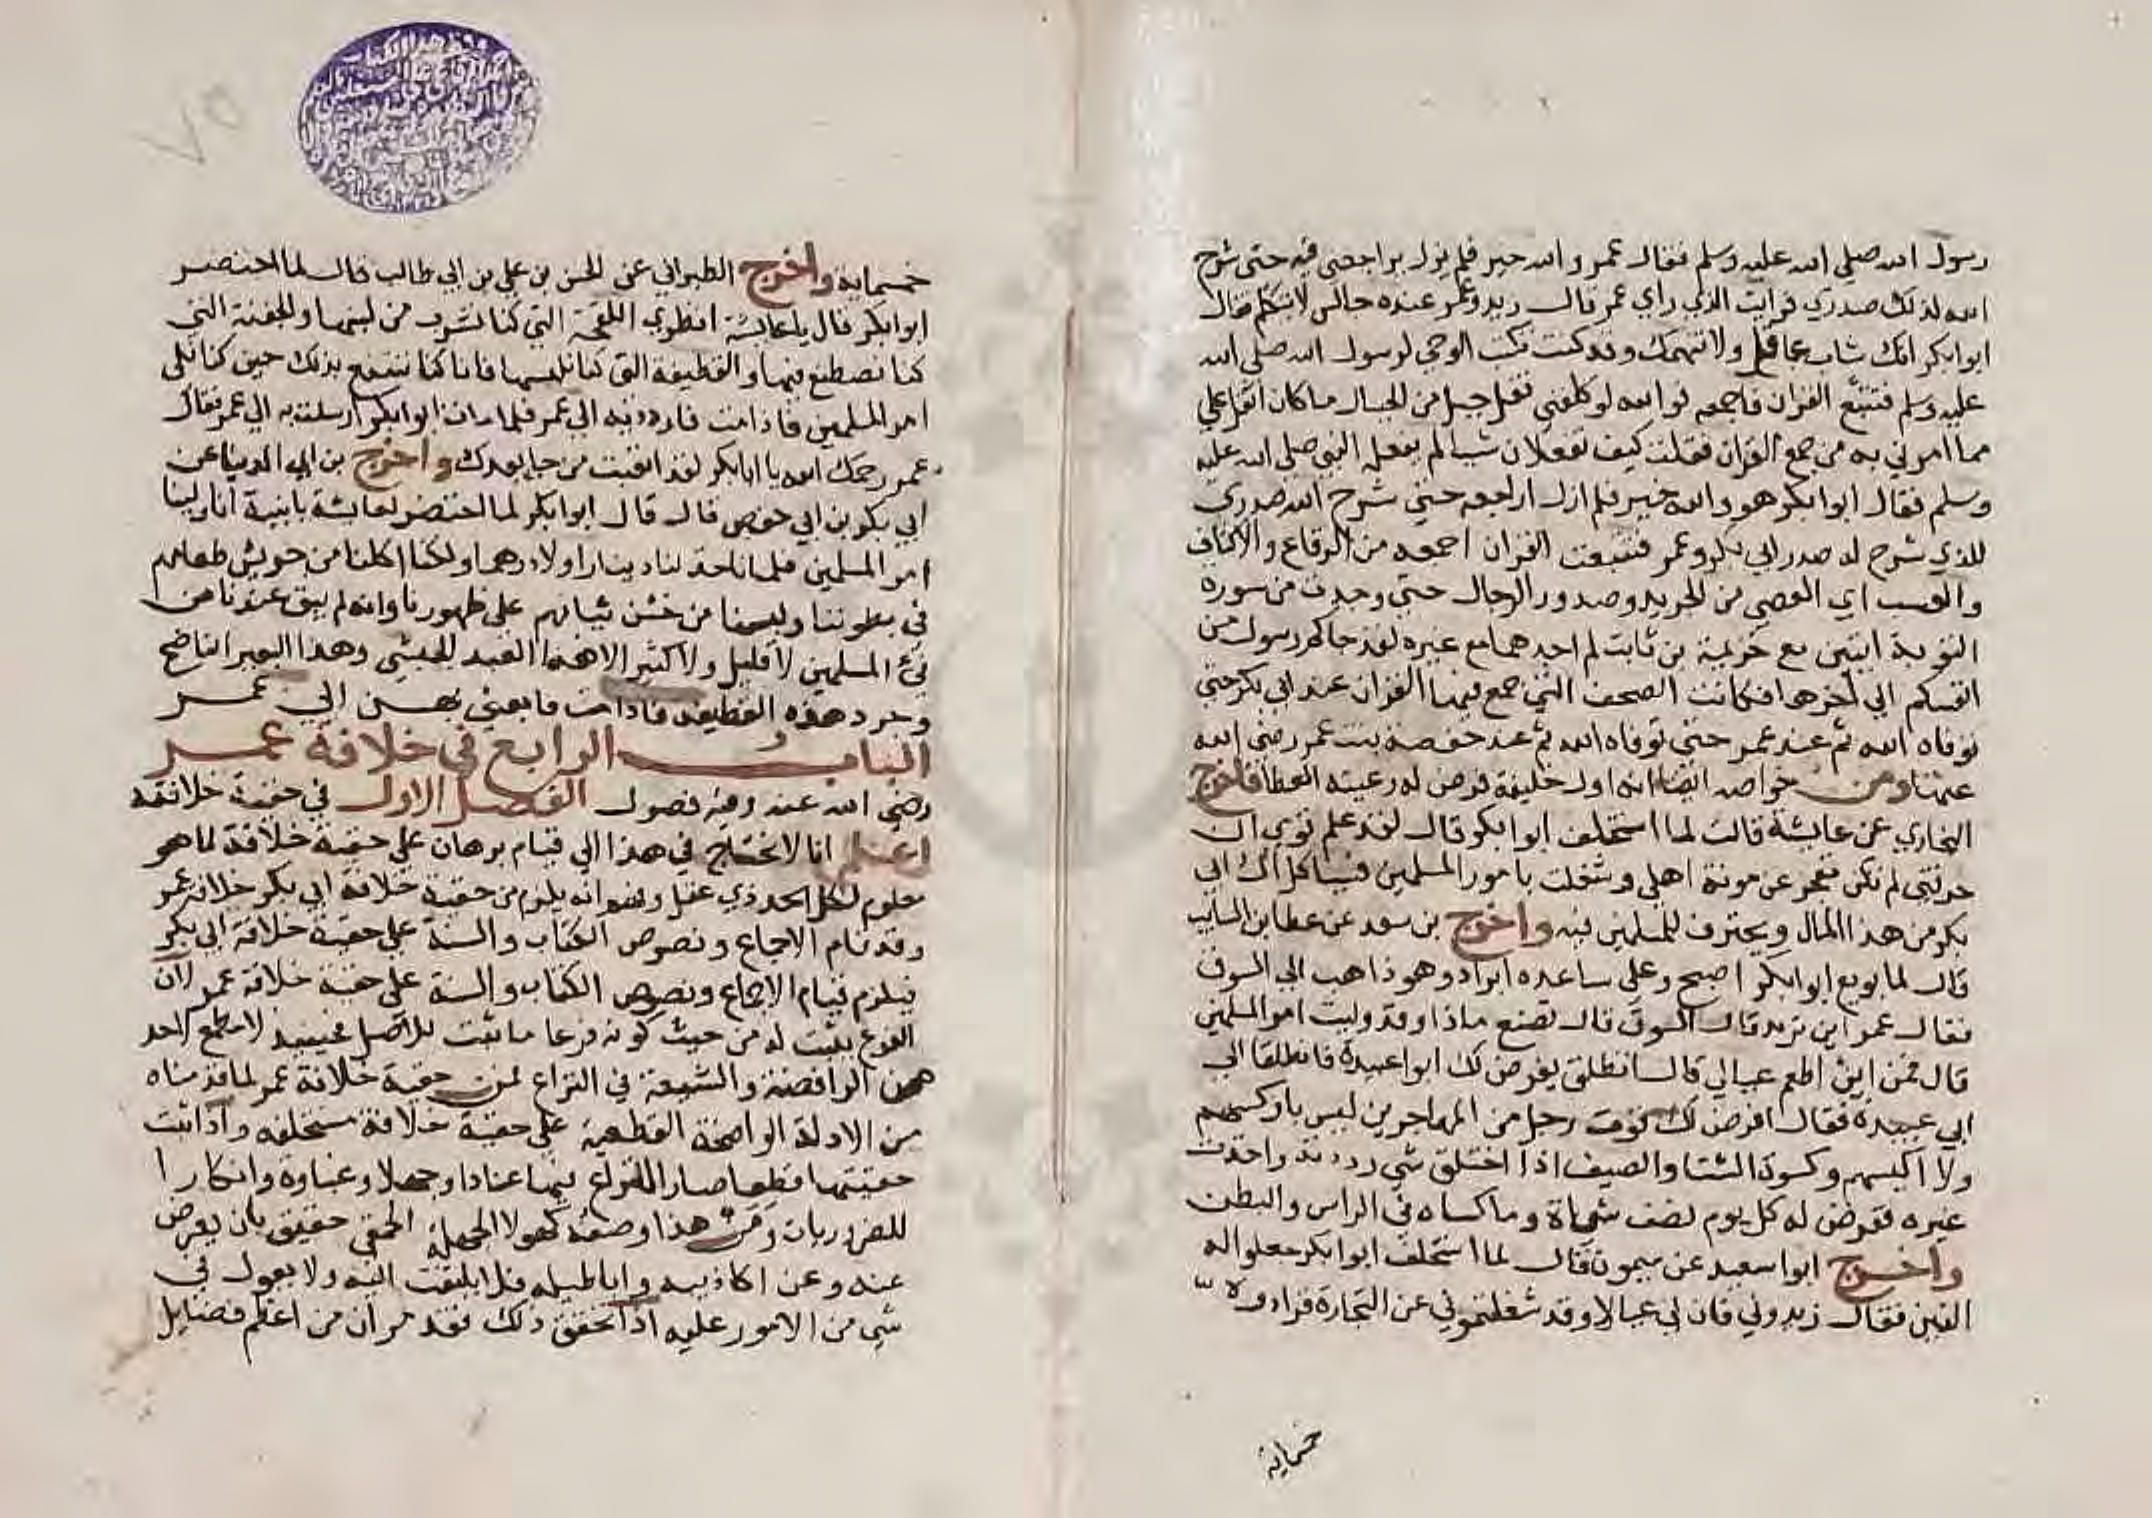 رسول الله صلي الله عليه وسلم فقال عمر والله خير فلم يزل يراجعني فيه حتي شرح
الله لذلك صدري فرايت الذي راي عمر قال زيد وعمر عنده جالس لا يتكلم فقال
ابوابكر انك شاب عاقل ولا نتهمك وقد كنت تكتب الوحي لرسول الله صلي الله
عليه وسلم فتتبع القران فاجمعه فوالله لو كلفني نقل جبل من الجبال ما كان اثقل علي
مما امرني به من جمع القران فقلت كيف تفعلان شيا لم يفعله النبي صلي الله عليه
وسلم فقال ابوابكر هو والله خير فلم ازل اراجعه حتي شرح الله صدري
للذي شرح له صدر ابي بكر وعمر فتتبعت القران اجمعه من الرقاع والاكتاف
والعسب اي العصي من الجريد وصدور الرجال حتي وجدت من سورة
التوبة ايتين مع خزيمة بن ثابت لم اجدهما مع غيره لقد جاكم رسول من
انفسكم الي اخرها فكانت الصحف التي جمع فيها القران عند ابي بكر حتي
توفاه الله ثم عند عمر حتي توفاه الله ثم عند حفصة بنت عمر رضي الله
عنها ومن خواصه ايضا انه اول خليفة فرض له رعيته العطا فاخرج
البخاري عن عايشة قالت لما استخلف ابوابكر قال لقد علم قومي ان
حرفتي لم تكن تعجز عن مونة اهلي وشغلت بامور المسلمين فسياكل ال ابي
بكر من هذا المال ويحترف للمسلمين فيه واخرج بن سعد عن عطا بن السايب
قال لما بويع ابوابكر اصبح وعلي ساعده ابراد وهو ذاهب الي السوق
فقال عمر اين تريد قال السوق قال تصنع ماذا وقد وليت امر المسلمين
قال فمن اين اطعم عيالي قال انطلق يفرض لك ابوا عبيدة فانطلقا الي
ابي عبيدة فقال افرض لك قوت رجل من المهاجرين ليس باوكسهم
ولا اكيسهم وكسوة الشتا والصيف اذا اخلق شي رددته واخذت
غيره ففرض له كل يوم نصف شاة وما كساه في الراس والبطن
واخرج ابوا سعيد عن ميمون قال لما استخلف ابوابكر جعلوا له
الفين فقال زيدوني فان لي عيالا وقد شغلتموني عن التجارة فزادوه
خمسماية
٧٥
خمسماية واخرج الطبراني عن الحسن بن علي بن ابي طالب قال لما احتضر
ابوابكر قال يا عايشة انظري اللقحة التي كنا نشرب من لبنها والجفنة التي
كنا نصطبع فيها والقطيفة التي كنا نلبسها فانا كنا ننتفع بذلك حين كنا نلي
امر المسلمين فاذا مت فاردديه الي عمر فلما مات ابوابكر ارسلت به الي عمر فقال
عمر رحمك الله يا ابابكر لقد اتعبت من جا بعدك واخرج بن ابي الدنيا عن
ابي بكر بن ابي حفص قال قال ابوابكر لما احتضر لعايشة يا بنية انا ولينا
امر المسلمين فلم ناخذ لنا دينارا ولا درهما ولكنا اكلنا من جريش طعامهم
في بطوننا ولبسنا من خشن ثيابهم علي ظهورنا وانه لم يبق عندنا من
في المسلمين لا قليل ولا كثير الا هذا العبد الحبشي وهذا البعير الناضح
وجرد هذه القطيفة فاذا مت فابعثي بهن الي عمر
الباب الرابع في خلافة عمر
رضي الله عنه وفيه فصول الفصل الاول في حقية خلافته
اعلم انا لا نحتاج في هذا الي قيام برهان علي حقية خلافة لما هو
معلوم لكل احد ذي عقل وفهم انه يلزم من حقية خلافة ابي بكر خلافة عمر
وقد قام الاجماع ونصوص الكتاب والسنة علي حقية خلافة ابي بكر
فيلزم قيام الاجماع ونصوص الكتاب والسنة علي حقية خلافة عمر لان
الفرع يثبت له من حيث كونه فرعا ما يثبت للاصل فحينيذ لا مطمع لاحد
من الرافضة والشيعة في النزاع لمن حقية خلافة عمر لما قدمناه
من الادلة الواضحة القطعية علي حقية خلافة مستخلفه واذا ثبت
حقيتها قطعا صار النزاع فيها عنادا وجهلا وغباوة وانكارا
للضروريات ومن هذا وصفه كهولا الجهلة الحمقي حقيق بان يعرض
عنه وعن اكاذيبه واباطيله فلا يلتفت اليه ولا يعول في
شي من الامور عليه اذا تحقق ذلك فقد مر ان من اعظم فضايل